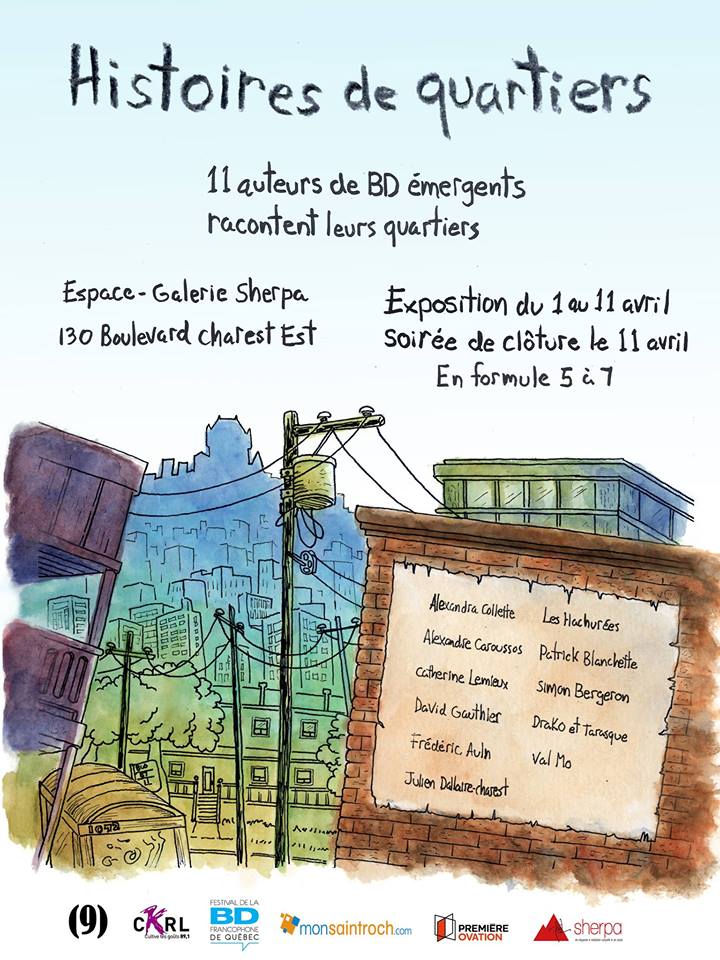 Histoires de quartiers
11 auteurs de BD émergents
racontent leurs quartiers
Espace-Galerie Sherpa
130 Boulevard Charest Est
Exposition du 1 au 11 avril
Soirée de clôture le 11 avril
En formule 5 à 7
Alexandra Collette
Alexandre Caroussos
Catherine Lemieux
David Gauthier
Frédéric Auln
Julien Dallaire-charest
Les Hachurées
Patrick Blanchette
Simon Bergeron
Drako et Tarasque
Val Mo
1052
(9)
CKRL
Cultive tes goûts 89,1
FESTIVAL DE LA
BD
FRANCOPHONE
DE QUÉBEC
monsaintroch.com
PREMIÈRE
OVATION
sherpa